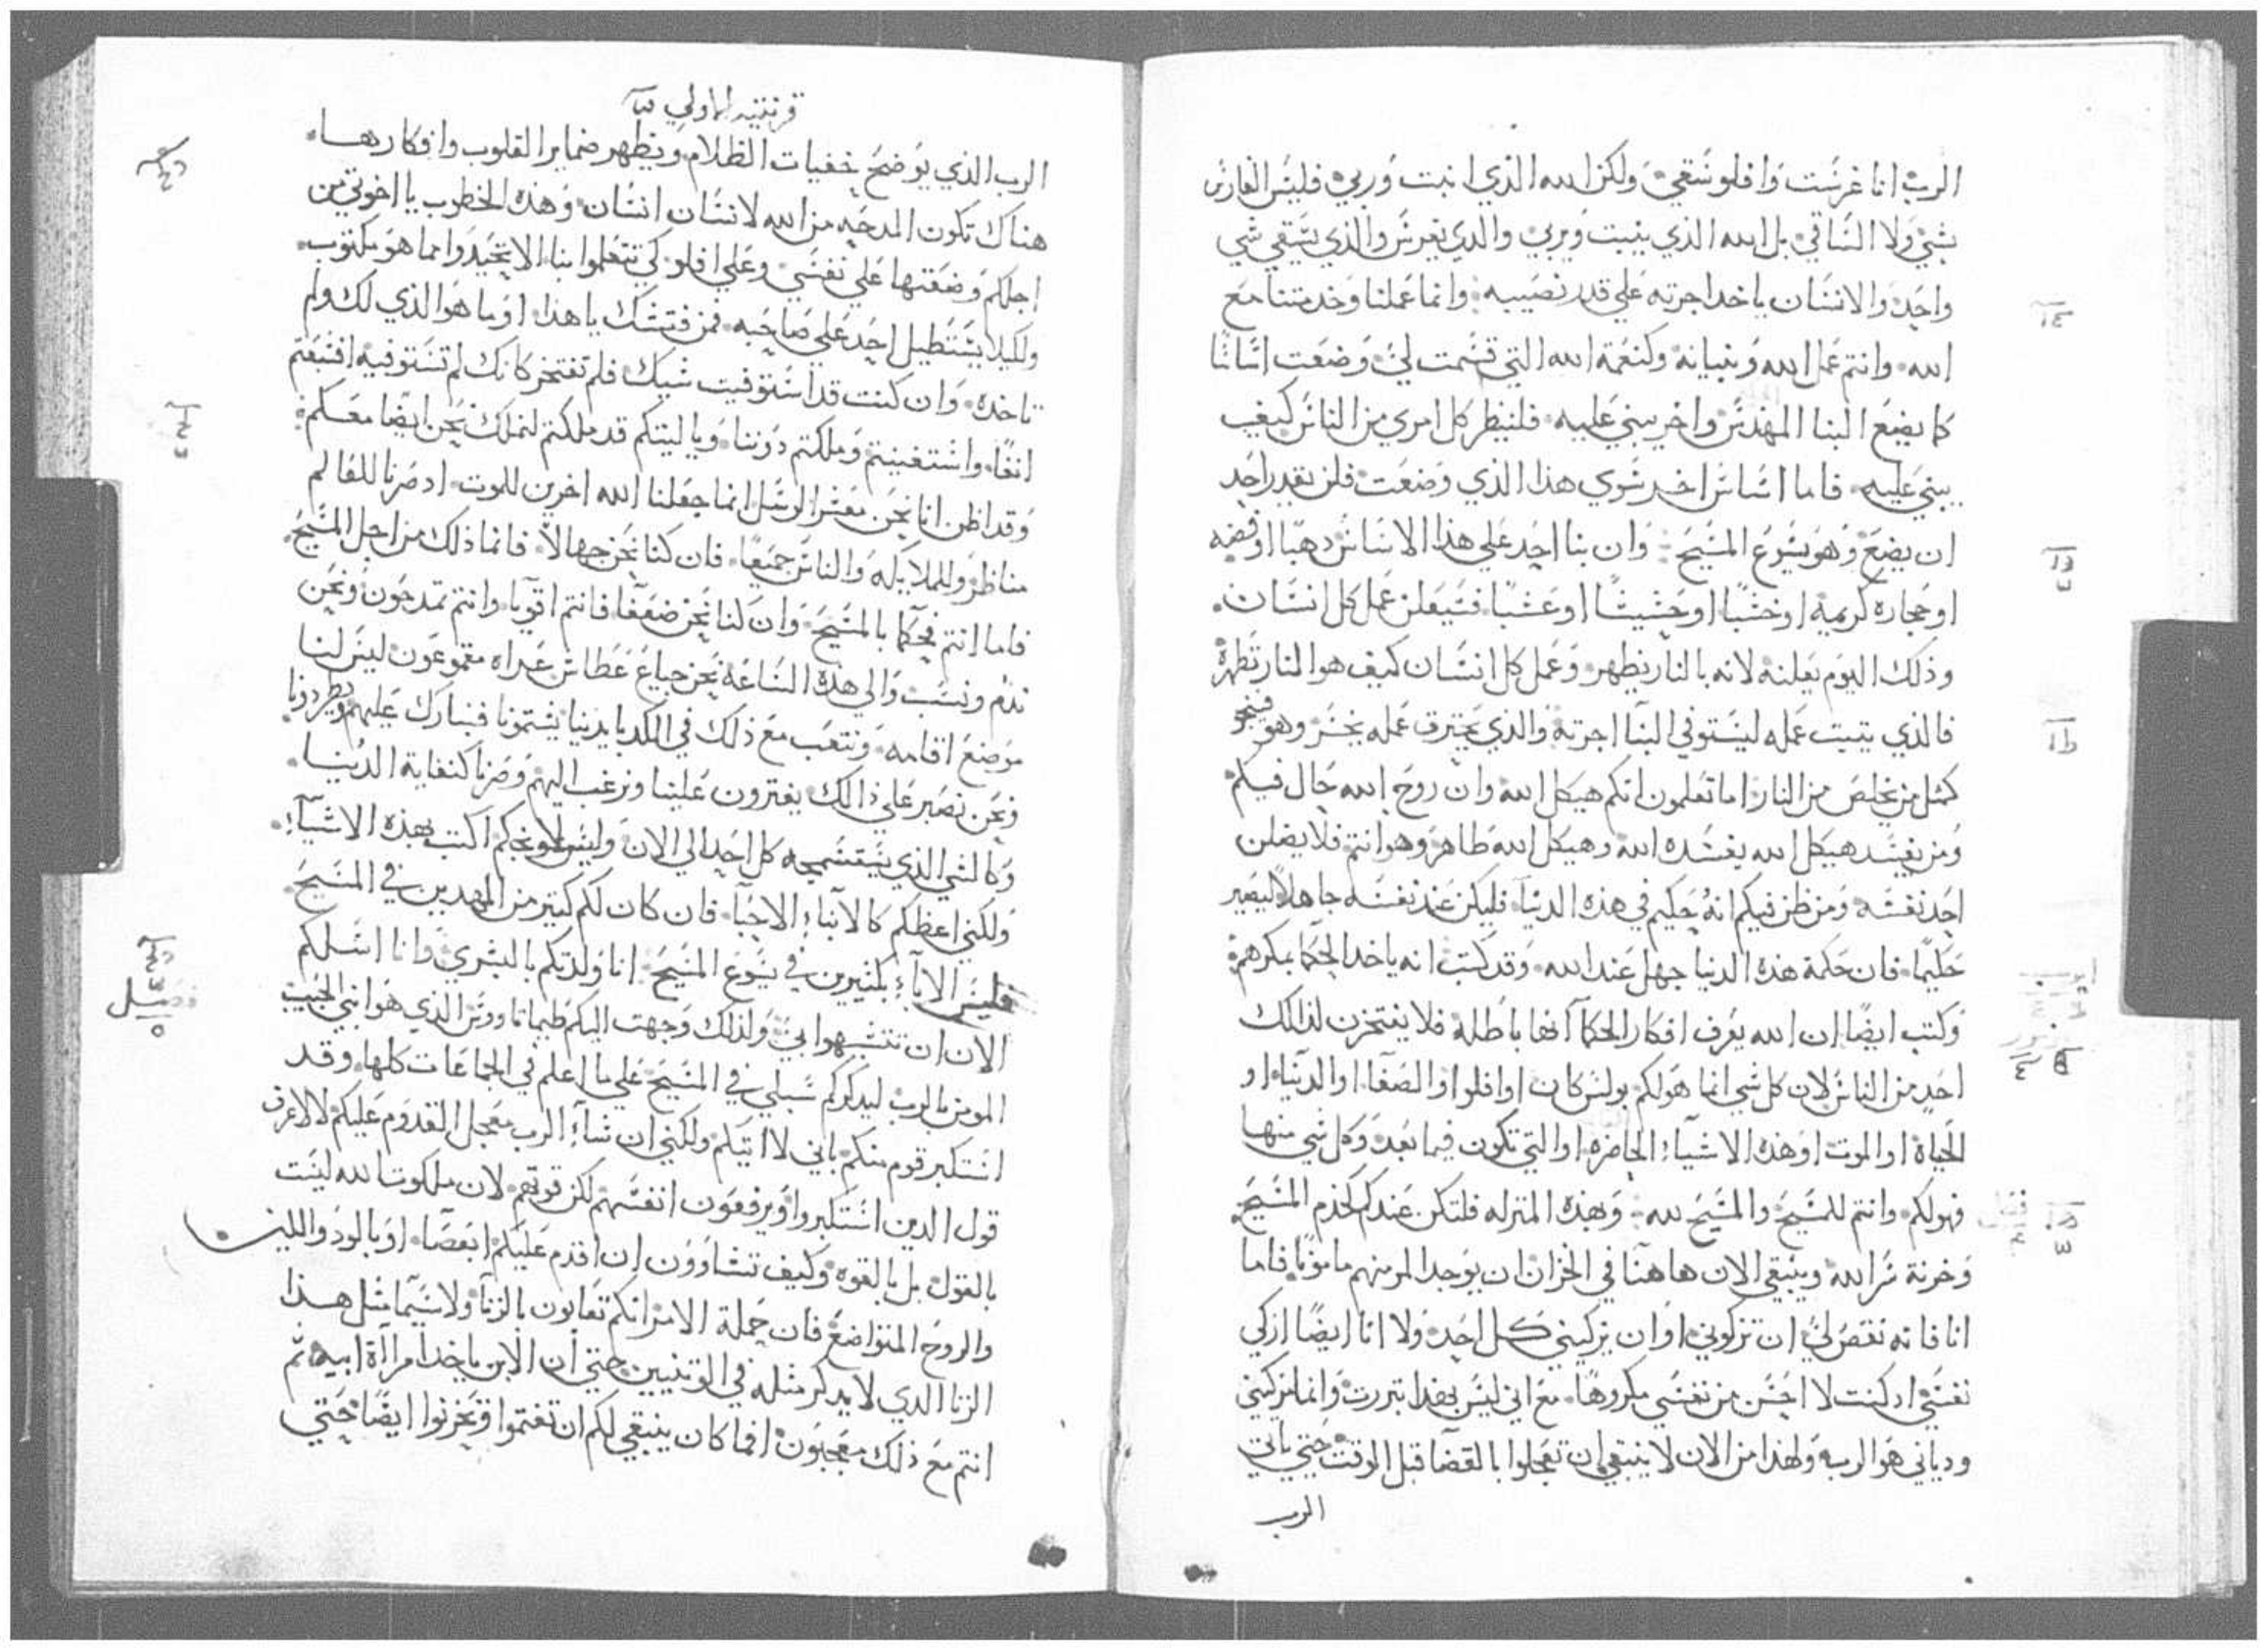 الرب انا غرست وافلو سقي ولكن الله الذي انبت وربي فليس الغارس
بشي ولا الساقي بل الله الذي ينبت ويربي والدي يغرس والذي يسقي شي
واحد والانسان ياخد اجرته علي قدر نصيبه وانما عملنا وخدمتنا مع
الله وانتم عمل الله وبنيانه وكنعمة الله التي قسمت لي وضعت اساسا
كما يضع البنا المهندس واخر يبني عليه فلينظر كل امري من الناس كيف
يبني عليه فاما اساس اخر سوي هذا الذي وضعت فلن يقدر احد
ان يضع وهو يسوع المسيح وان بنا احد علي هذا الاساس دهبا او فضه
او حجاره كريمة او خشبا او حشيشا او عشبا فسيعلن عمل كل انسان
وذلك اليوم يعلنه لانه بالنار يظهر وعمل كل انسان كيف هو النار تظهرة
فالذي يتبت عمله ليستوفي البنا اجرته والذي يحترق عمله يخسر وهو فينجو
كمثل من يخلص من النار اما تعلمون انكم هيكل الله وان روح الله حال فيكم
ومن يفسد هيكل الله يفسده الله وهيكل الله طاهر وهو انتم فلا يضلن
احد نفسه ومن ظن فيكم انه حكيم في هذه الدنيا فليكن عند نفسه جاهلا ليصير
حكيما فان حكمة هذه الدنيا جهل عند الله وقد كتب انه ياخد الحكما بمكرهم
وكتب ايضا ان الله يعرف افكار الحكما انها باطلة فلا يفتخرن لذلك
احد من الناس لان كل شي انما هو لكم بولس كان او افلوا والصفا او الدنيا او
الحياة او الموت او هذه الاشياء الحاضره او التي تكون فيما بعد وكل شي منها
فهو لكم وانتم للمسيح والمسيح لله وبهذه المنزله فلتكن عندكم كخدم المسيح
وخزنة سر الله وينبغي الان هاهنا في الخزان ان يوجد المر منهم مامونا فاما
انا فانه نقص لي ان تزكوني او ان يزكيني كل احد ولا انا ايضا ازكي
نفسي اد كنت لا احس من نفسي مكروها مع اني ليس بهذا تبررت وانما مزكيني
ودياني هو الرب ولهذا من الان لا ينبغي ان تعجلوا بالقضا قبل الوقت حتي ياتي
الرب
قرنتيه الاولي
الرب الذي يوضح خفيات الظلام ويظهر ضماير القلوب وافكارها
هناك تكون المدحه من الله لانسان انسان وهذه الخطوب يا اخوتي من
اجلكم وضعتها علي نفسي وعلي افلو كي تتعلموا بنا الا تحيدوا مما هو مكتوب
ولكيلا يستطيل احد علي صاحبه فمن فتشك يا هذا او ما هو الذي لك ولم
تاخده وان كنت قد استوفيت شيك فلم تفتخر كانك لم تستوفيه افشبعتم
انفا واستغنيتم وملكتم دوننا ويا ليتكم قد ملكتم لنملك نحن ايضا معكم
وقد اظن انا نحن معشر الرسل انما جعلنا الله اخرين للموت اد صرنا للعالم
مناظر وللملايكه والناس جميعا فان كنا نحن جهالا فانما ذلك من اجل المسيح
فاما انتم فحكما بالمسيح وان كنا نحن ضعفا فانتم اقويا وانتم تمدحون ونحن
ندم ونسب والي هذه الساعة نحن جياع عطاش عراه مقموعون ليس لنا
موضع اقامه ونتعب مع ذلك في الكد بايدينا يشتمونا فنبارك عليهم ويطردونا
ونحن نصبر علي ذالك يفترون علينا ونرغب اليهم وصرنا كنفاية الدنيا
وكالشي الذي يستسمجه كل احد الي الان وليس لاوبخكم اكتب بهذه الاشياء
ولكني اعظكم كالابناء الاحبا فان كان لكم كتير من المهدين في المسيح
فليس الاباء بكثيرين في يسوع المسيح انا ولدتكم بالبشري وانا اسلكم
الان ان تتشبهوا بي ولذلك وجهت اليكم طيماتاووس الذي هو ابني الحبيب
المومن بالرب ليدكركم سبلي في المسيح علي ما اعلم في الجماعات كلها وقد
استكبر قوم منكم باني لا اتيكم ولكني ان شاء الرب معجل القدوم عليكم لا لاعرف
قول الدين استكبروا ويرفعون انفسهم لكن قوتهم لان ملكوت الله ليست
بالقول بل بالقوه وكيف تشاوون ان اقدم عليكم ابعصا او بالود واللين
والروح المتواضع فان جملة الامر انكم تعابون بالزنا ولا سيما مثل هذا
الزنا الدي لا يدكر مثله في الوتنيين حتي ان الابن ياخد امراة ابيه تم
انتم مع ذلك معجبون افما كان ينبغي لكم ان تغتموا وتحزنوا ايضا حتي
فصل